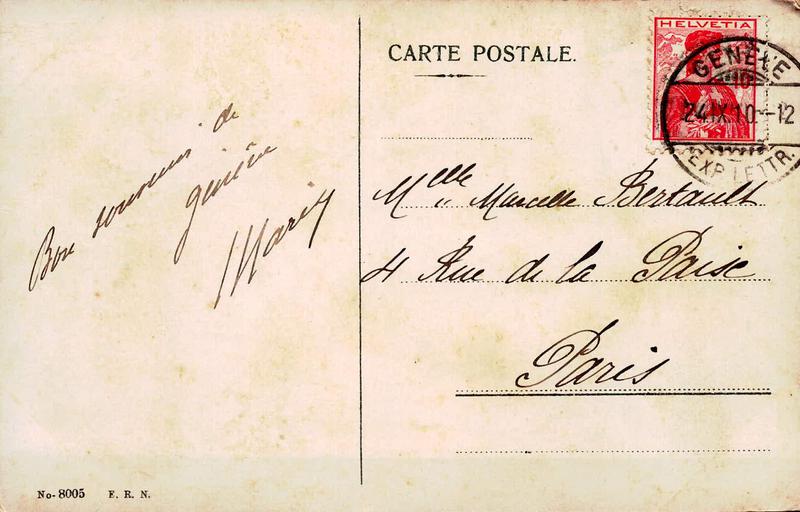 CARTE POSTALE.
HELVETIA
GENÈVE
10
24 IX 10 - 12
EXP. LETTR.
Bon souvenir de
Genève
Marie
Mlle Marcelle Bertault
4 Rue de la Paix
Paris
No- 8005 E. R. N.